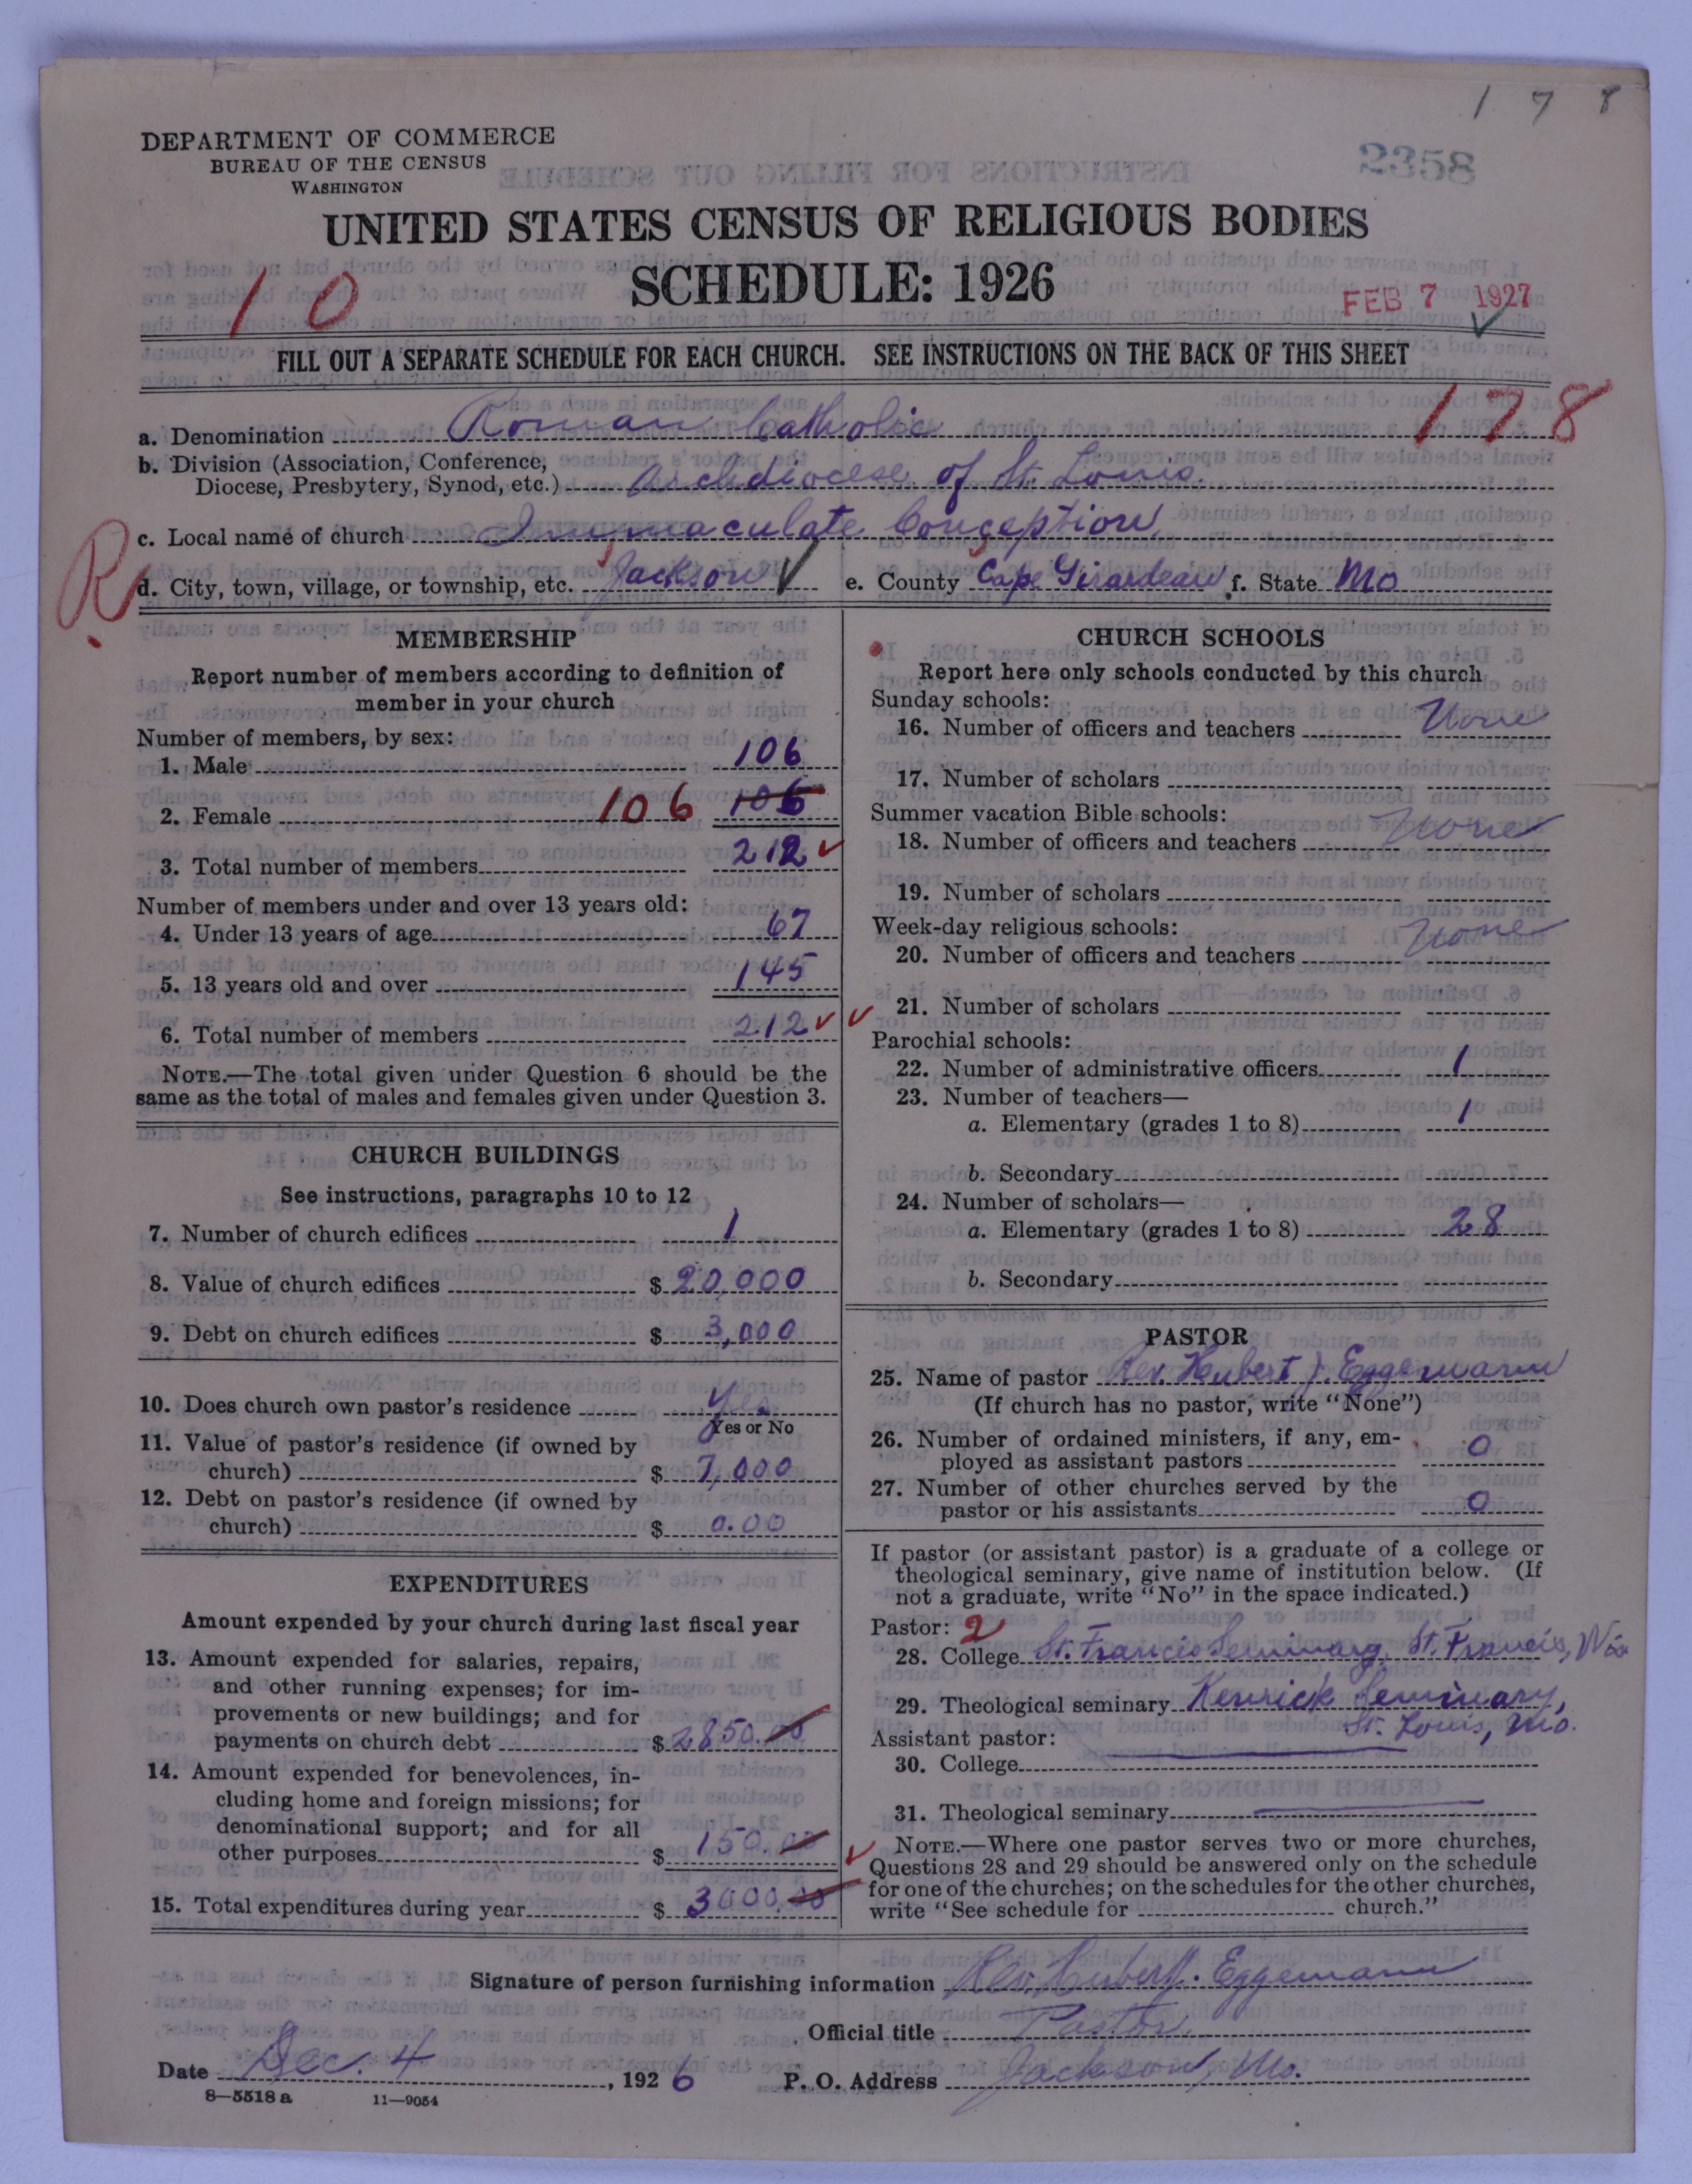 1 7 8
DEPARTMENT OF COMMERCE
BUREAU OF THE CENSUS
WASHINGTON
2358
UNITED STATES CENSUS OF RELIGIOUS BODIES
SCHEDULE: 1926
10
FEB 7 1927
FILL OUT A SEPARATE SCHEDULE FOR EACH CHURCH. SEE INSTRUCTIONS ON THE BACK OF THIS SHEET
178
a. Denomination Roman Catholic
b. Division (Association, Conference,
Diocese, Presbytery, Synod, etc.) Archdiocese of St. Louis.
c. Local name of church Immaculate Conception
R
d. City, town, village, or township, etc. Jackson ✓ e. County Cape Girardeau f. State Mo
MEMBERSHIP
Report number of members according to definition of
member in your church
Number of members, by sex:
1. Male 106
2. Female 106 106
3. Total number of members 212 ✓
Number of members under and over 13 years old:
4. Under 13 years of age 67
5. 13 years old and over 145
6. Total number of members 212 ✓ ✓
NOTE.—The total given under Question 6 should be the
same as the total of males and females given under Question 3.
CHURCH BUILDINGS
See instructions, paragraphs 10 to 12
7. Number of church edifices 1
8. Value of church edifices $ 20,000
9. Debt on church edifices $ 3,000
10. Does church own pastor's residence Yes
Yes or No
11. Value of pastor's residence (if owned by
church) $ 7,000
12. Debt on pastor's residence (if owned by
church) $ 0.00
EXPENDITURES
Amount expended by your church during last fiscal year
13. Amount expended for salaries, repairs,
and other running expenses; for im-
provements or new buildings; and for
payments on church debt $ 2850.00
14. Amount expended for benevolences, in-
cluding home and foreign missions; for
denominational support; and for all
other purposes $ 150.00
15. Total expenditures during year $ 3000.00
CHURCH SCHOOLS
Report here only schools conducted by this church
Sunday schools:
16. Number of officers and teachers None
17. Number of scholars
Summer vacation Bible schools:
18. Number of officers and teachers None
19. Number of scholars
Week-day religious schools:
20. Number of officers and teachers None
21. Number of scholars
Parochial schools:
22. Number of administrative officers 1
23. Number of teachers—
a. Elementary (grades 1 to 8) 1
b. Secondary
24. Number of scholars—
a. Elementary (grades 1 to 8) 28
b. Secondary
PASTOR
25. Name of pastor Rev. Hubert J. Eggemann
(If church has no pastor, write "None")
26. Number of ordained ministers, if any, em-
ployed as assistant pastors 0
27. Number of other churches served by the
pastor or his assistants 0
If pastor (or assistant pastor) is a graduate of a college or
theological seminary, give name of institution below. (If
not a graduate, write "No" in the space indicated.)
Pastor: 2
28. College St. Francis Seminary, St. Francis, Wis
29. Theological seminary Kenrick Seminary,
St. Louis, Mo.
Assistant pastor:
30. College
31. Theological seminary
✓ NOTE.—Where one pastor serves two or more churches,
Questions 28 and 29 should be answered only on the schedule
for one of the churches; on the schedules for the other churches,
write "See schedule for church."
Signature of person furnishing information Rev. Hubert J. Eggemann
Official title Pastor.
Date Dec. 4, 1926 P. O. Address Jackson, Mo.
8—5518 a 11—9054